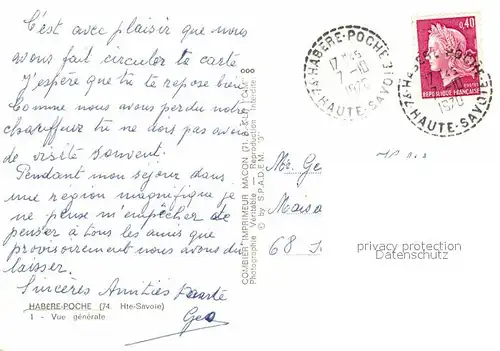 C'est avec plaisir que nous
avons fait circuler ta carte
J'espère que tu te repose bien
Comme nous avons perdu notre
chauffeur tu n'en pas
de visité souvent.
Pendant mon sejour dans
une région magnifique je
ne peux m'empêcher de
penser à tous les amis que
provisoirement nous avons dû
laisser.
Sincères Amitiés
Geo
HABERE-POCHE (74. Hte-Savoie)
1 - Vue générale
COMBIER IMPRIMEUR MACON (71. S.-&-L.) "CIM"
Photographie Véritable — Reproduction Interdite
© by S.P.A.D.E.M. "9"
74 HABERE-POCHE
17 H
7-10
1970
HAUTE-SAVOIE
0,40
REPUBLIQUE FRANÇAISE
74 HABERE-POCHE
17 H
7-10
1970
HAUTE-SAVOIE
Mr. Ge
Maiso
68
privacy protection
Datenschutz